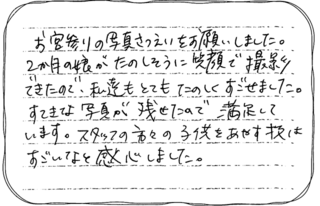 お宮参りの写真さつえいをお願いしました。
2か月の娘がたのしそうに笑顔で撮影
できたので、私達もとてもたのしくすごせました。
すてきな写真が残せたので満足して
います。スタッフの方々の子供をあやす技は
すごいなと感心しました。